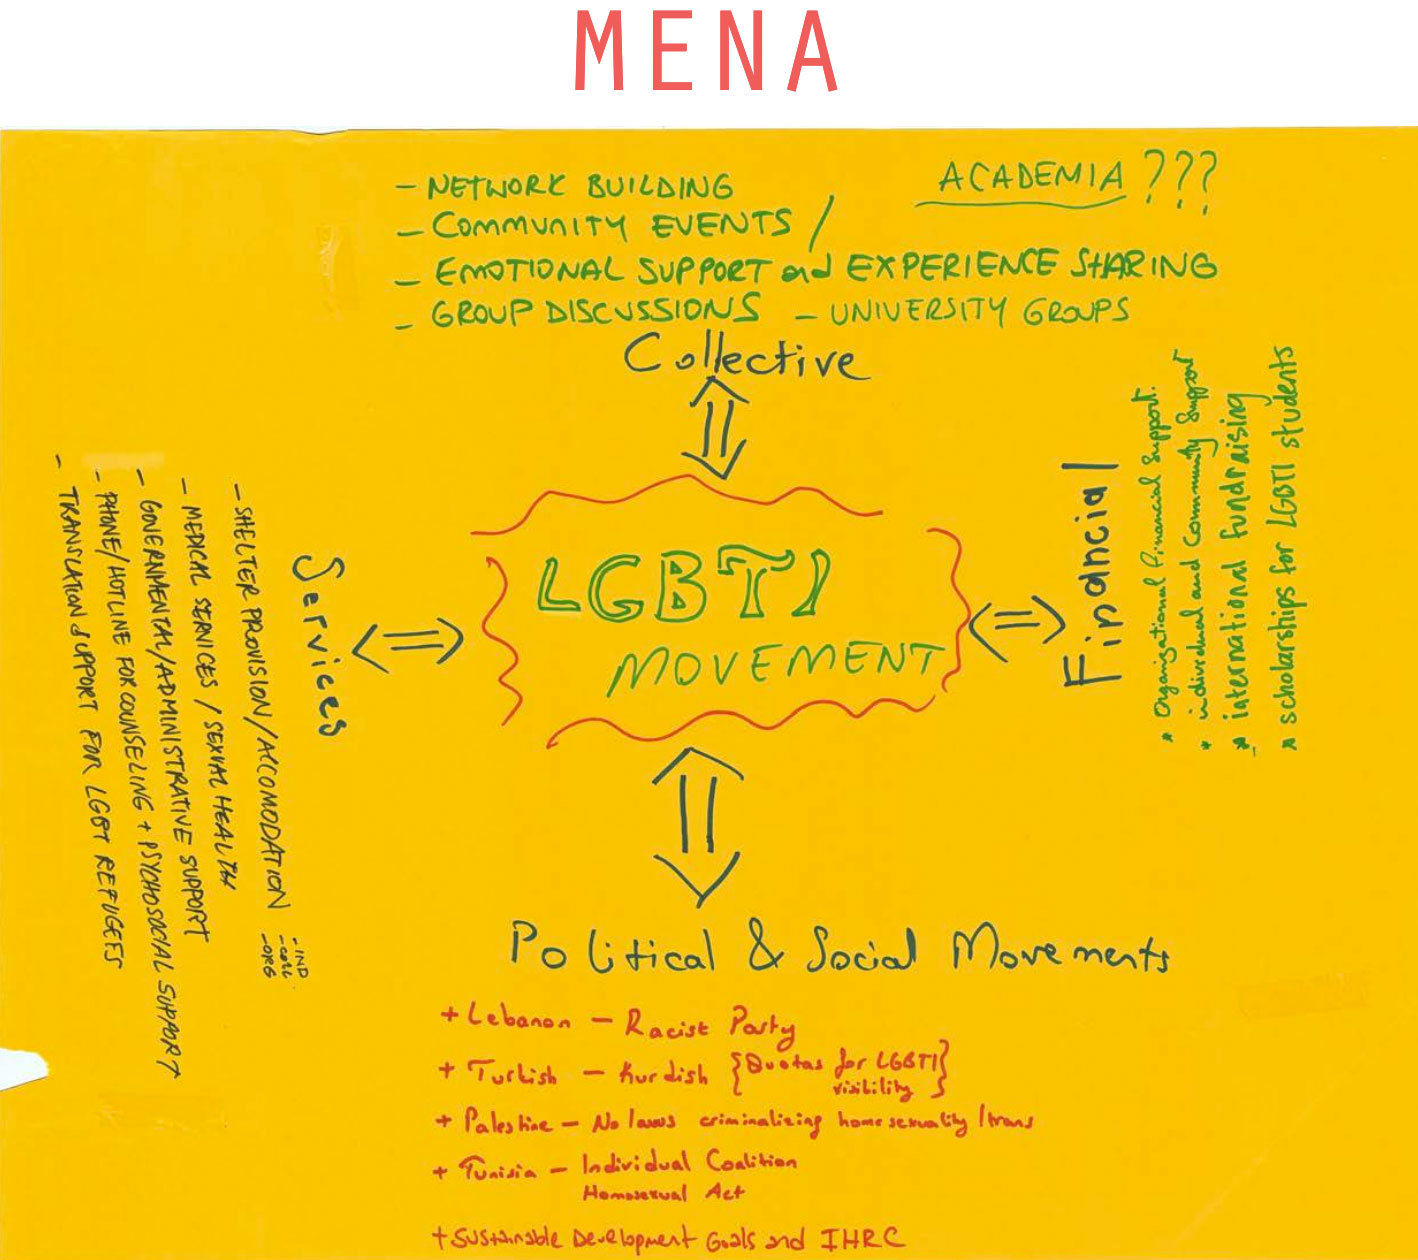 MENA
- NETWORK BUILDING
ACADEMIA ???
- COMMUNITY EVENTS /
- EMOTIONAL SUPPORT and EXPERIENCE SHARING
- GROUP DISCUSSIONS - UNIVERSITY GROUPS
Collective
LGBTI
MOVEMENT
Services
- SHELTER PROVISION/ACCOMODATION
- IND
- COLL
- ORG
- MEDICAL SERVICES / SEXUAL HEALTH
- GOVERNMENTAL/ADMINISTRATIVE SUPPORT
- PHONE/HOTLINE FOR COUNSELING + PSYCHOSOCIAL SUPPORT
- TRANSLATION SUPPORT FOR LGBT REFUGEES
Financial
* Organizational Financial Support.
* individual and Community Support
* international fundraising
* scholarships for LGBTI students
Political & Social Movements
+ Lebanon - Racist Party
+ Turkish - Kurdish {Quotas for LGBTI
visibility}
+ Palestine - No laws criminalizing homosexuality/trans
+ Tunisia - Individual Coalition
Homosexual Act
+ Sustainable Development Goals and IHRC